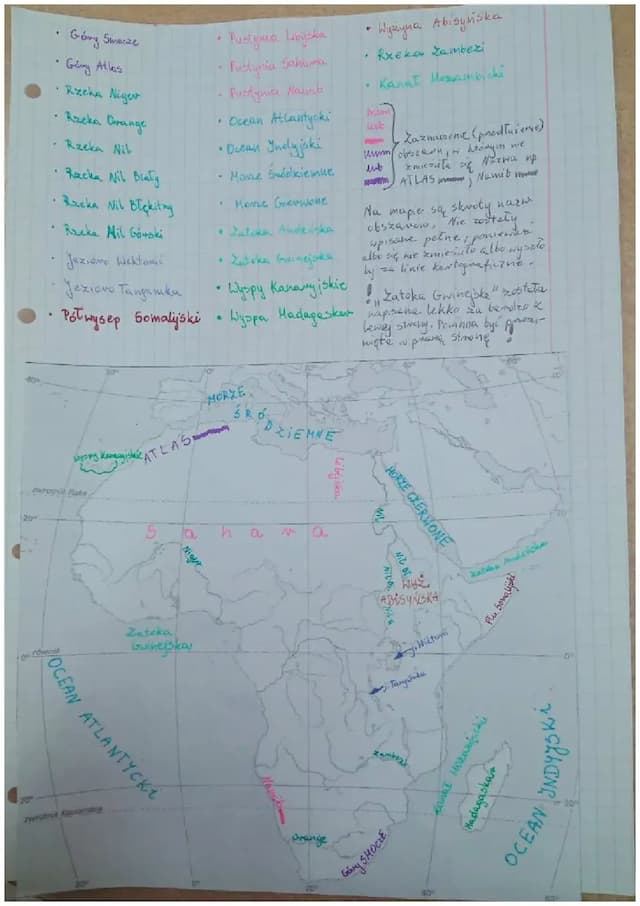 • Góry Smocze
• Góry Atlas
• Rzeka Niger
• Rzeka Orange
• Rzeka Nil
• Rzeka Nil Biały
• Rzeka Nil Błękitny
• Rzeka Nil Górski
• Jezioro Wiktorii
• Jezioro Tanganika
• Półwysep Somalijski
• Pustynia Libijska
• Pustynia Sahara
• Pustynia Namib
• Ocean Atlantycki
• Ocean Indyjski
• Morze Śródziemne
• Morze Czerwone
• Zatoka Adeńska
• Zatoka Gwinejska
• Wyspy Kanaryjskie
• Wyspa Madagaskar
• Wyżyna Abisyńska
• Rzeka Zambezi
• Kanał Mozambicki
lub
lub
Zaznaczenie (przedłużenie)
obszaru, w którym nie
zmieściła się nazwa np
ATLAS, Namib
Na mapie są skróty nazw
obszarów. Nie zostały
wpisane pełne, ponieważ
albo się nie zmieściło albo wyszło
by za linie kartograficzne.
! „Zatoka Gwinejska" została
napisana lekko za bardzo z
lewej strony. Powinna być przesu-
nięta w prawą stronę !
40°
20°
0°
20°
40°
MORZE
ŚRÓDZIEMNE
Wyspy Kanaryjskie
ATLAS
Libijska
MORZE CZERWONE
zwrotnik Raka
20°
Nil
Sahara
Niger
Zatoka Adeńska
WYŻ.
ABISYŃSKA
Płw Somalijski
Zatoka
Gwinejska
j. Wiktorii
równik
0°
0°
j. Tanganika
OCEAN ATLANTYCKI
OCEAN INDYJSKI
Zambezi
Kanał Mozambicki
Madagaskar
Namib
20°
20°
zwrotnik Koziorożca
Orange
Góry SMOCZE
20°
0°
20°
40°